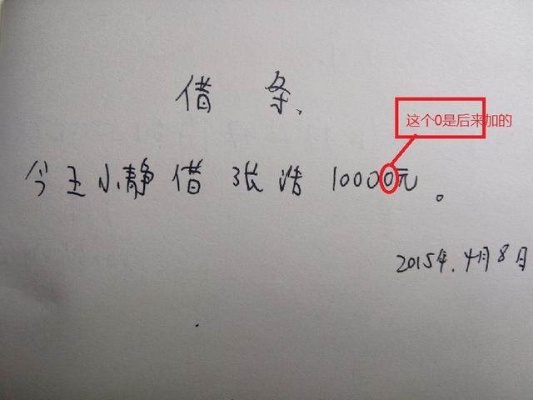 借条
这个0是后来加的
今王小静借张浩10000元。
2015年.4月8日